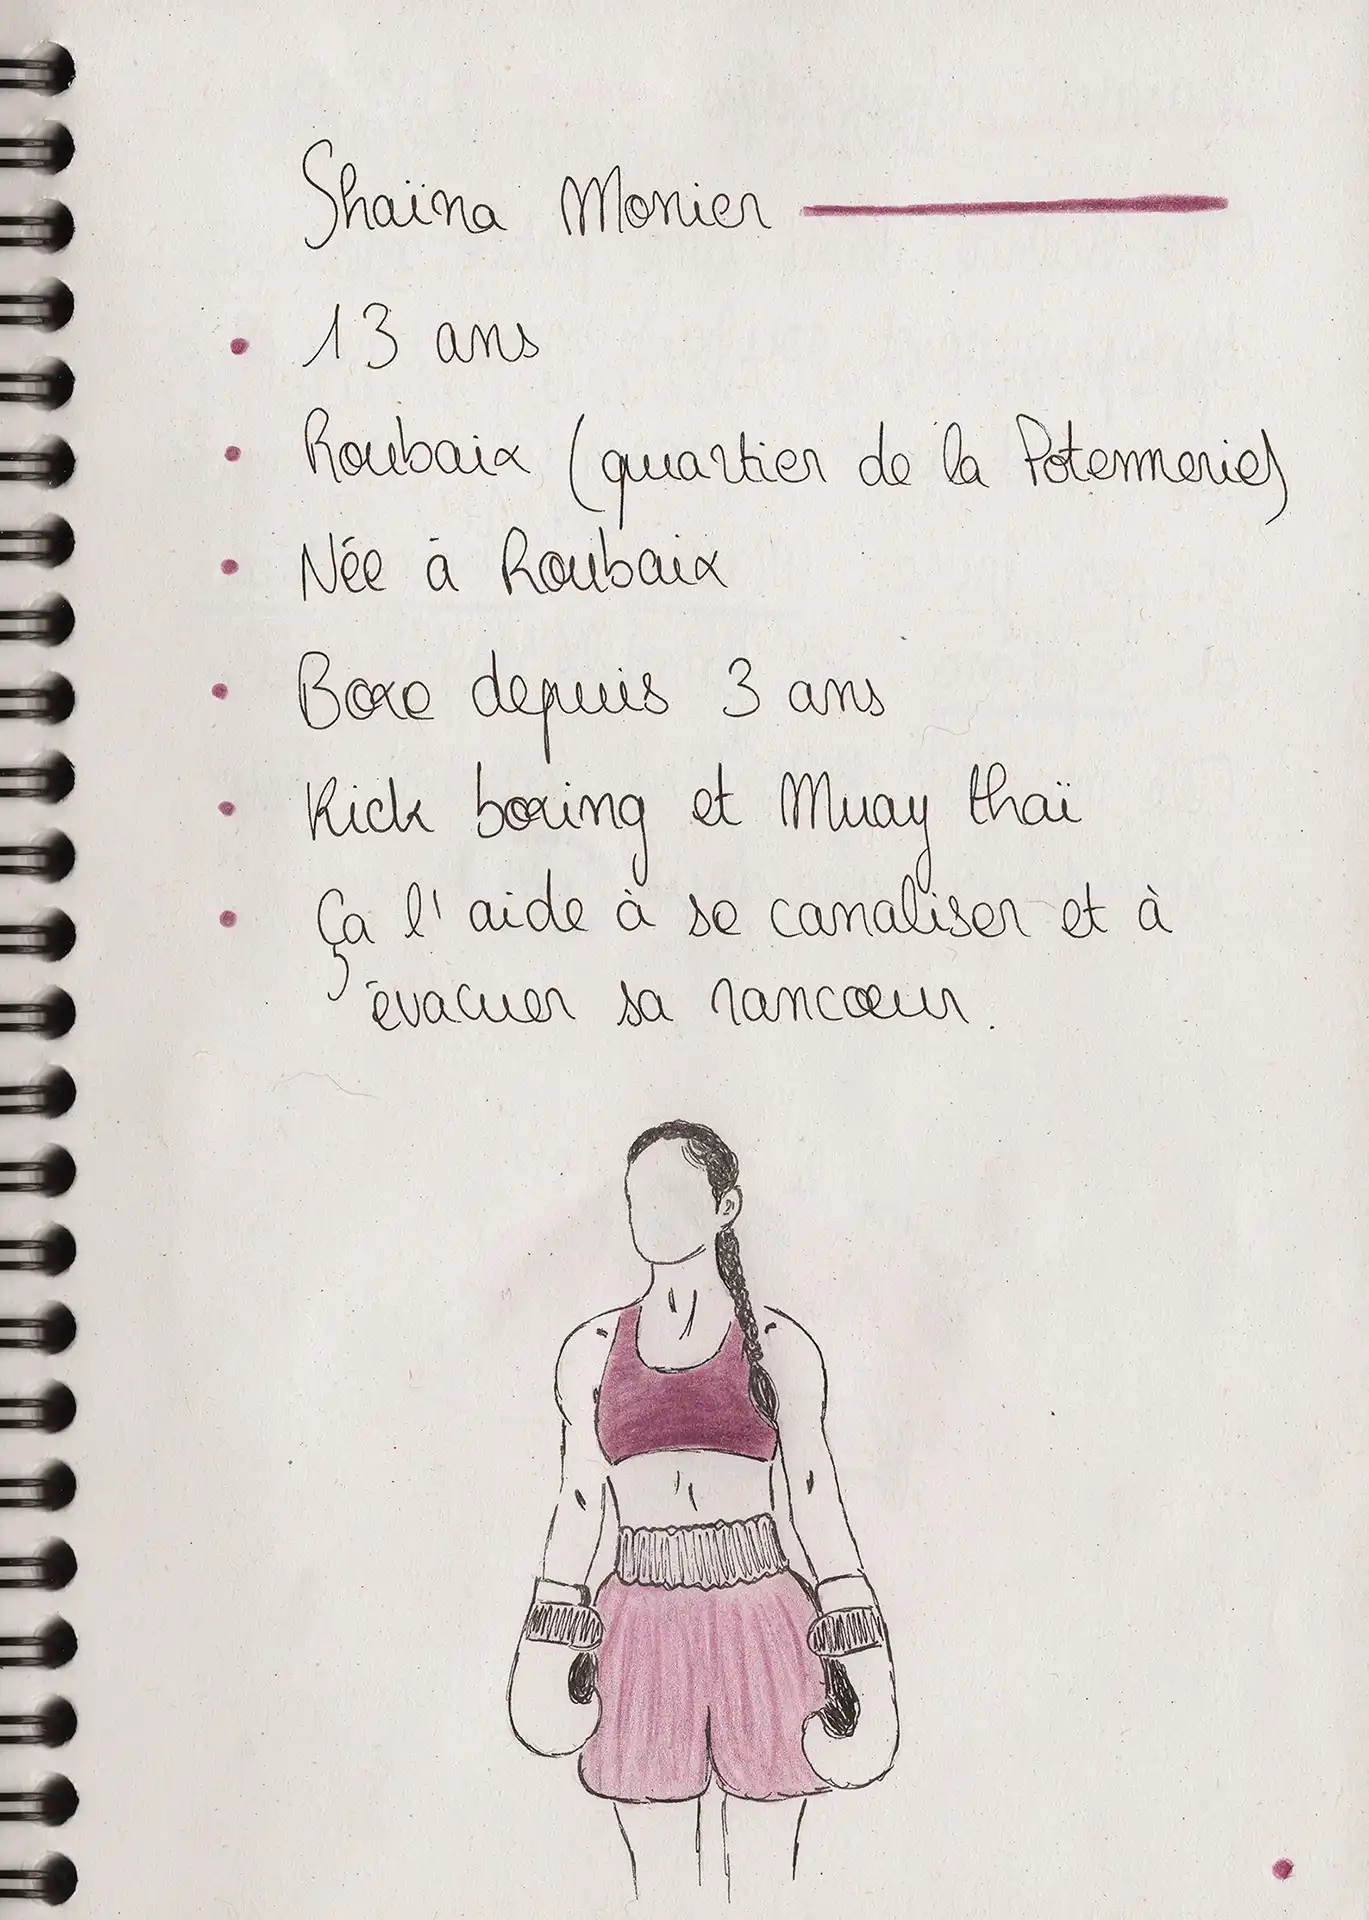 Shaïna Monier
13 ans
Roubaix (quartier de la Potennerie)
Née à Roubaix
Boxe depuis 3 ans
Kick boxing et Muay thaï
Ça l'aide à se canaliser et à
évacuer sa rancœur.